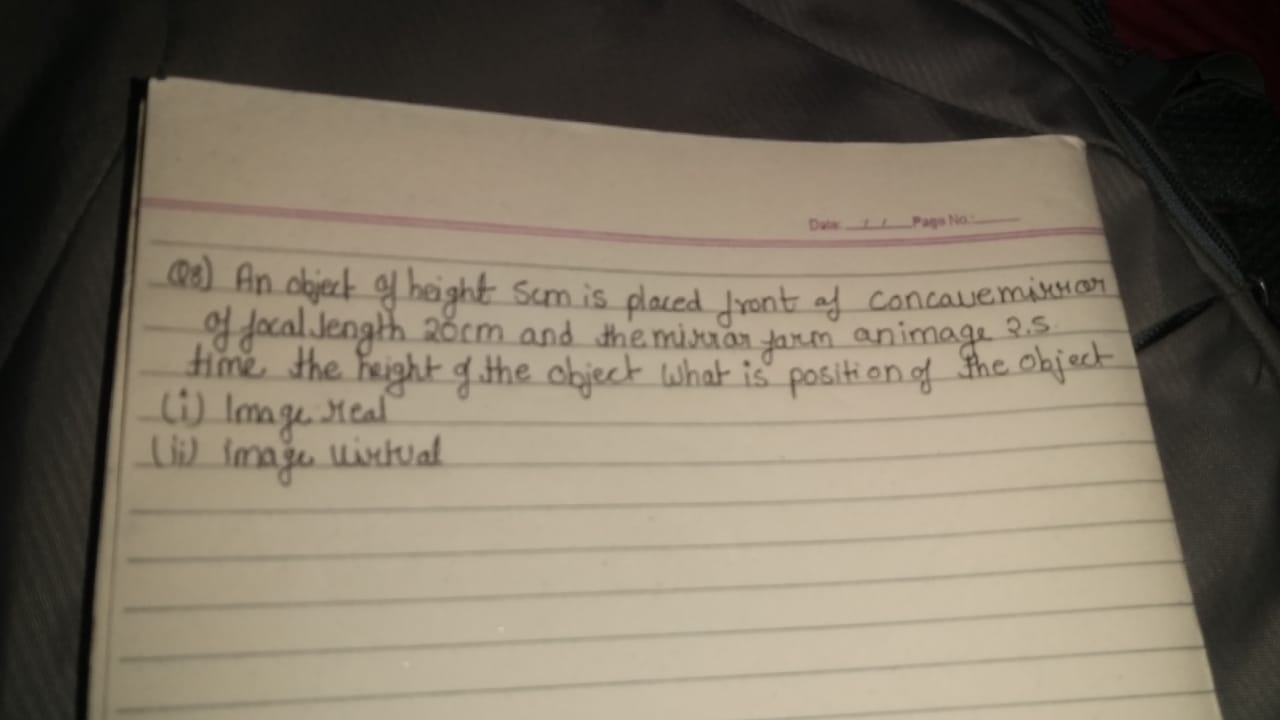 Date: / / Page No.:
Q8) An object of height 5cm is placed front of concave mirror
of focal length 20cm and the mirror form an image 2.5
time the height of the object what is position of the object
(i) Image real
(ii) image virtual